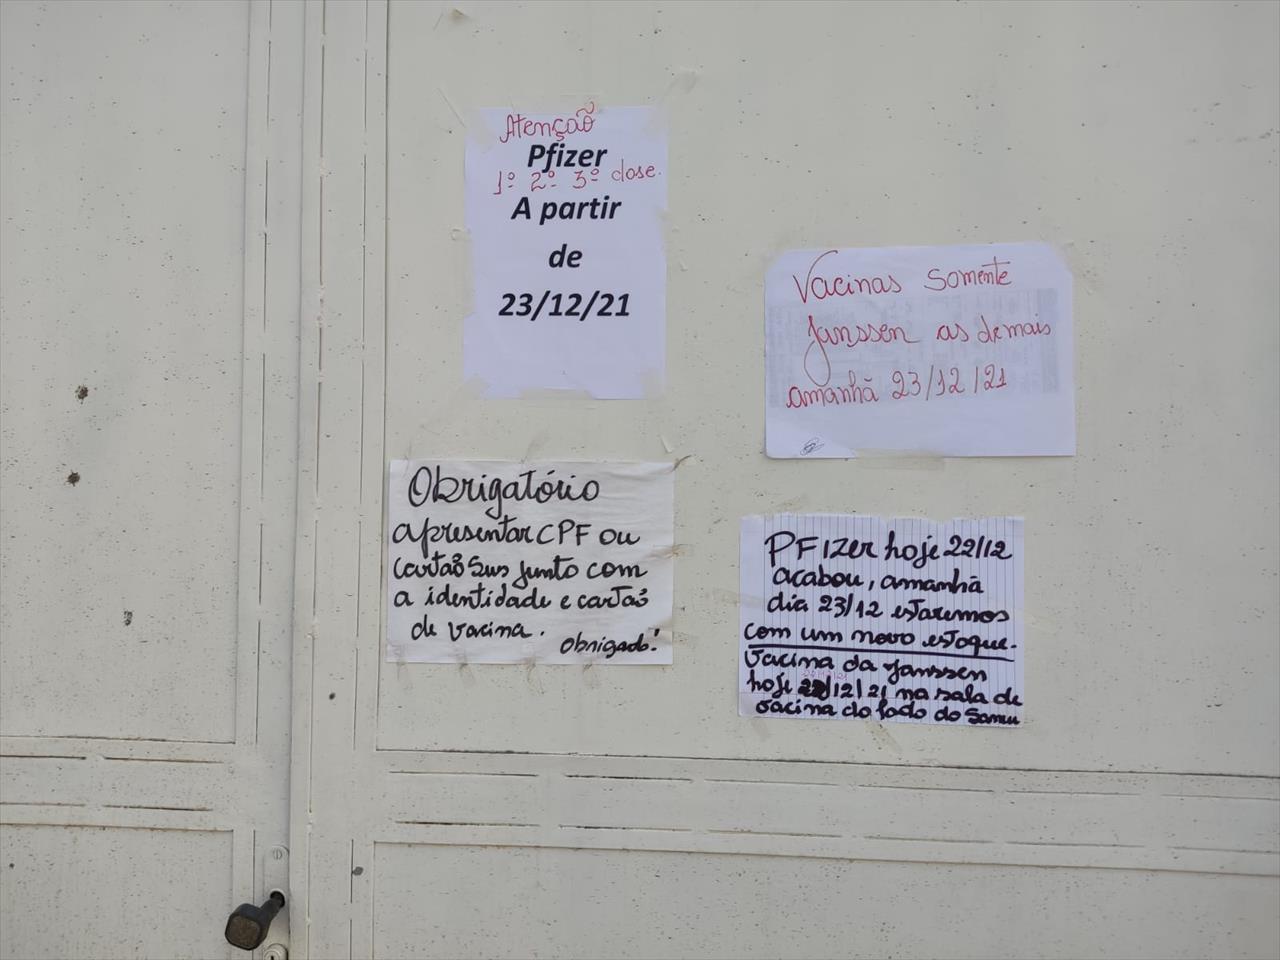 Atenção
Pfizer
1º 2º 3º dose.
A partir
de
23/12/21
Vacinas somente
Janssen as demais
amanhã 23/12/21
Obrigatório
apresentar CPF ou
cartão Sus junto com
a identidade e cartão
de vacina.
Obrigado!
PFizer hoje 22/12
acabou, amanhã
dia 23/12 estaremos
com um novo estoque.
Vacina da Janssen
hoje 22/12/21 na sala de
vacina do lado do Samu